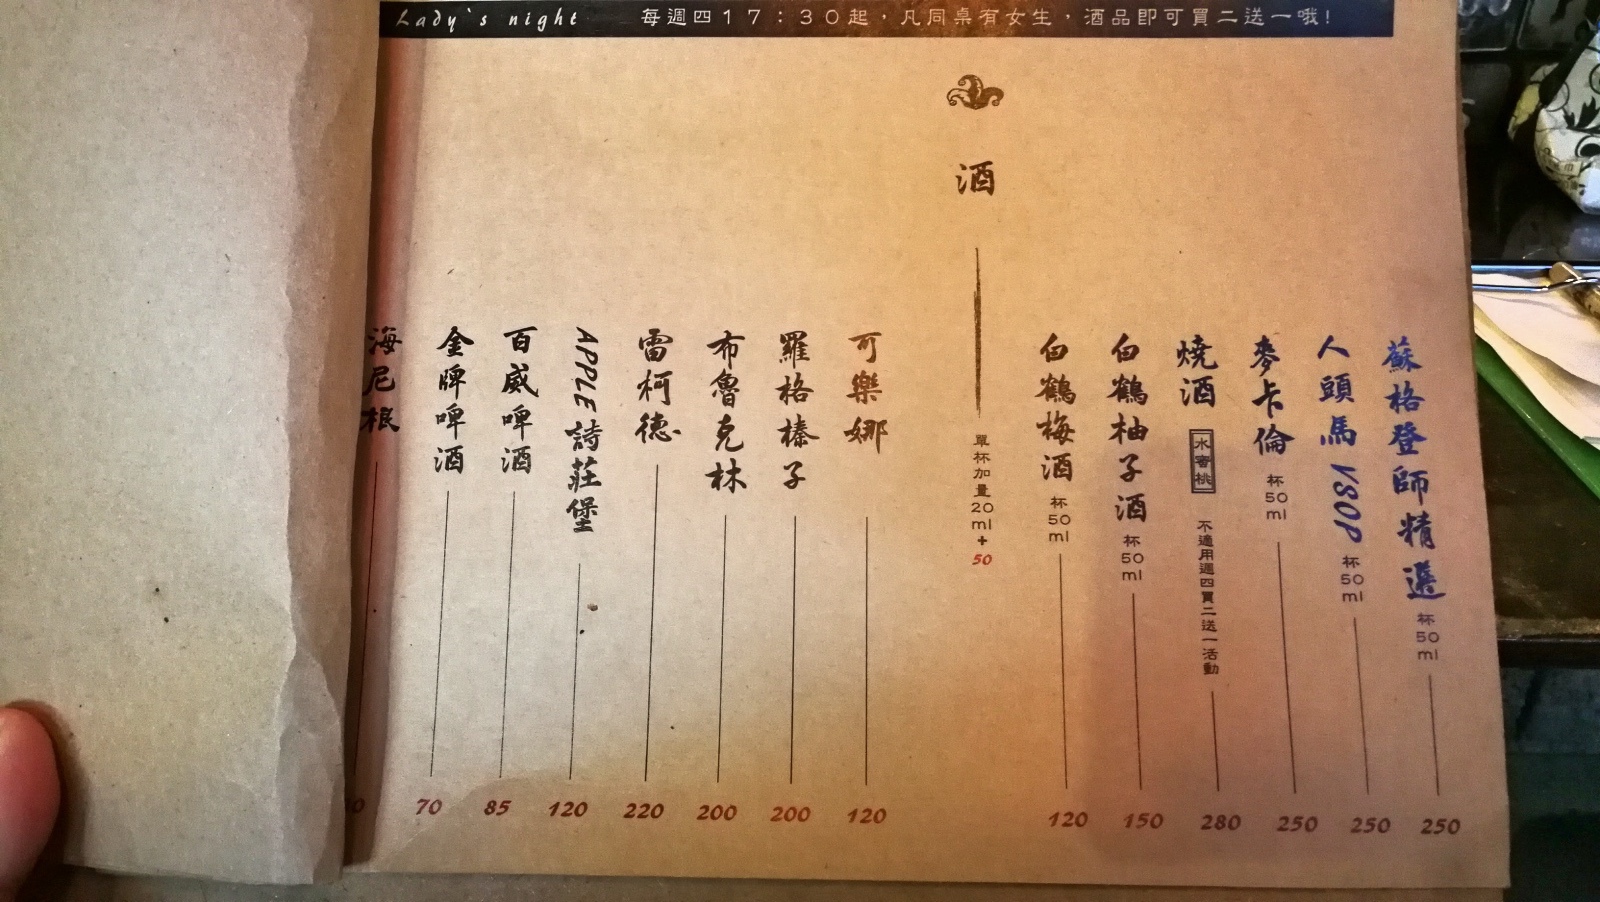 Lady's night 每週四17:30起，凡同桌有女生，酒品即可買二送一哦！
酒
蘇格登師精選 杯50ml 250
人頭馬VSOP 杯50ml 250
麥卡倫 杯50ml 250
燒酒 水蜜桃 不適用週四買二送一活動 280
白鶴柚子酒 杯50ml 150
白鶴梅酒 杯50ml 120
單杯加量20ml+50
可樂娜 120
羅格榛子 200
布魯克林 200
雷柯德 220
APPLE詩莊堡 120
百威啤酒 85
金牌啤酒 70
海尼根